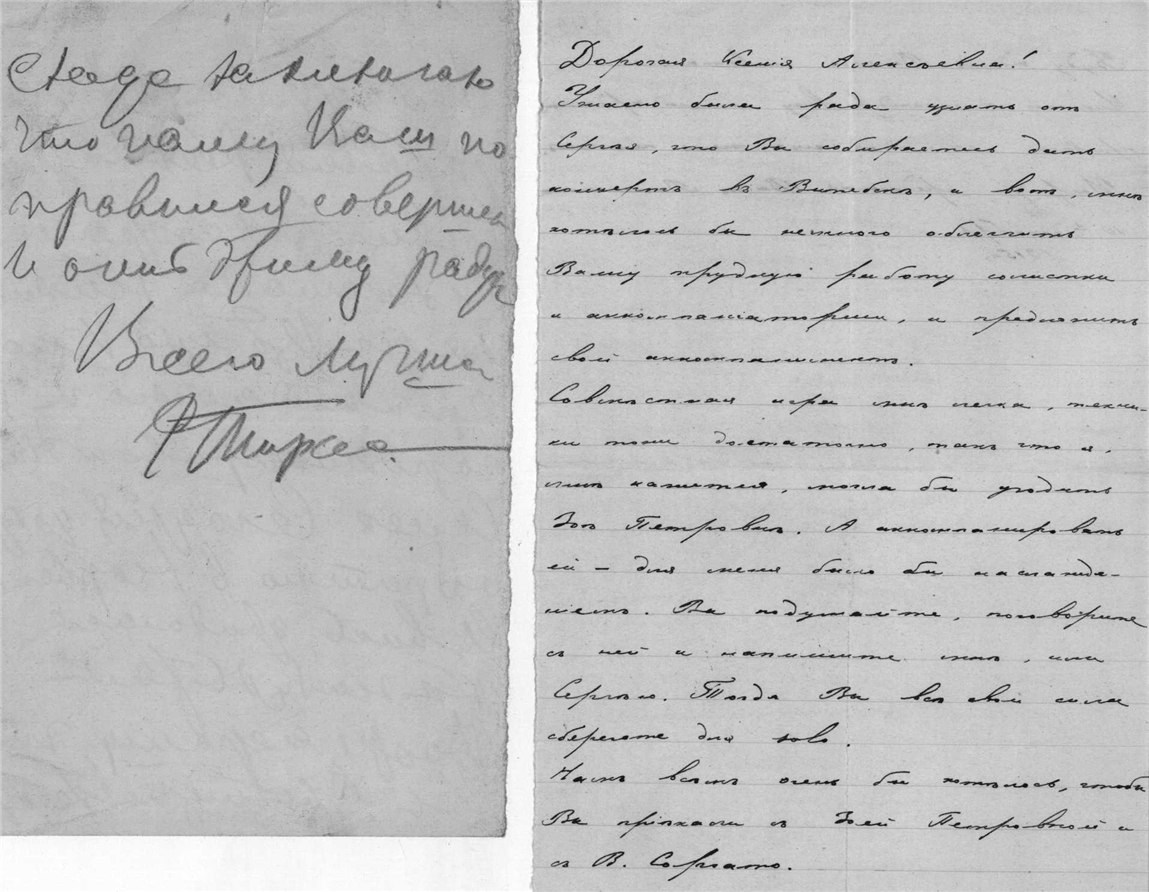 сюда заключаю
что палец Ваш по
правился совершен
и очень этому раду
Всего лучша
Дорогая Ксенія Алексѣевна!
Ужасно была рада узнать отъ
Сергѣя, что Вы собираетесь дать
концертъ въ Витебскѣ, и вотъ, мнѣ
хотѣлось бы немного облегчить
Вашу трудную работу солистки
и аккомпаніаторши, и предложить
свой аккомпаниментъ.
Совмѣстная игра мнѣ легка, техни-
ки тоже достаточно, такъ что я,
мнѣ кажется, могла бы угодить
Зоѣ Петровнѣ. А аккомпанировать
ей – для меня было бы наслажде-
ніемъ. Вы подумайте, поговорите
съ ней и напишите мнѣ, или
Сергѣю. Тогда Вы всѣ свои силы
сбережете для solo.
Намъ всѣмъ очень бы хотѣлось, чтобы
Вы пріѣхали съ Зоей Петровной и
съ В.